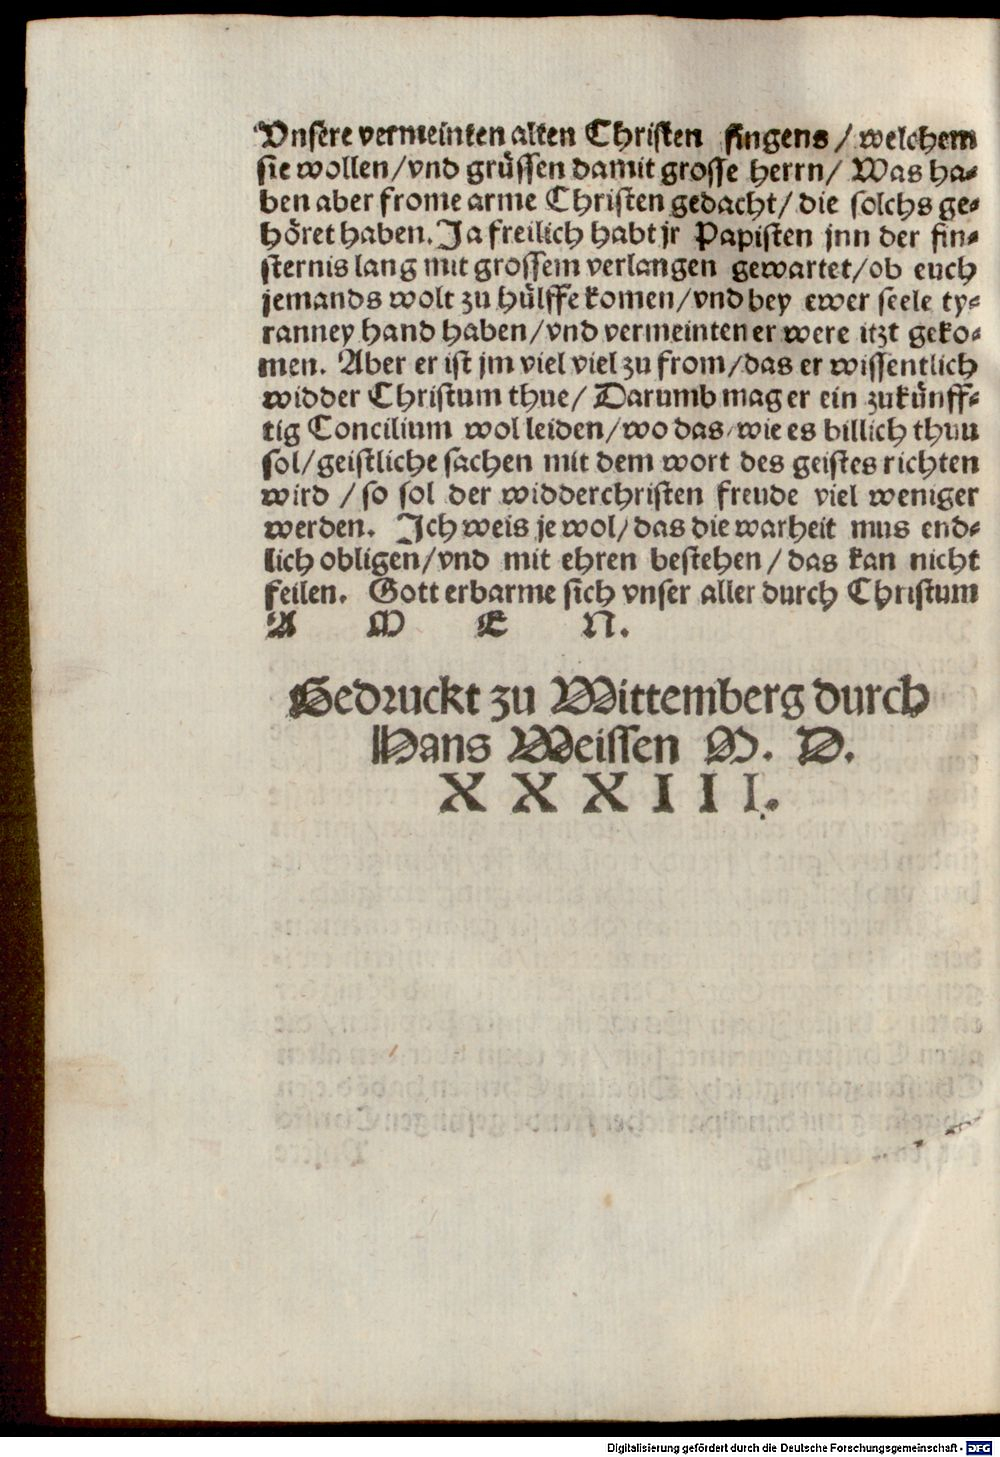 Vnsere vermeinten alten Christen singens / welchem
sie wollen / vnd grüssen damit grosse herrn / Was ha-
ben aber frome arme Christen gedacht / die solchs ge-
höret haben. Ja freilich habt jr Papisten jnn der fin-
sternis lang mit grossem verlangen gewartet / ob euch
jemands wolt zu hülffe komen / vnd bey ewer seele ty-
ranney hand haben / vnd vermeinten er were itzt geko-
men. Aber er ist jm viel viel zu from / das er wissentlich
widder Christum thue / Darumb mag er ein zukünff-
tig Concilium wol leiden / wo das / wie es billich thun
sol / geistliche sachen mit dem wort des geistes richten
wird / so sol der widderchristen freude viel weniger
werden. Ich weis je wol / das die warheit mus end-
lich obligen / vnd mit ehren bestehen / das kan nicht
feilen. Gott erbarme sich vnser aller durch Christum
A M E N.
Gedruckt zu Wittemberg durch
Hans Weissen M. D.
X X X I I I.
Digitalisierung gefördert durch die Deutsche Forschungsgemeinschaft - DFG